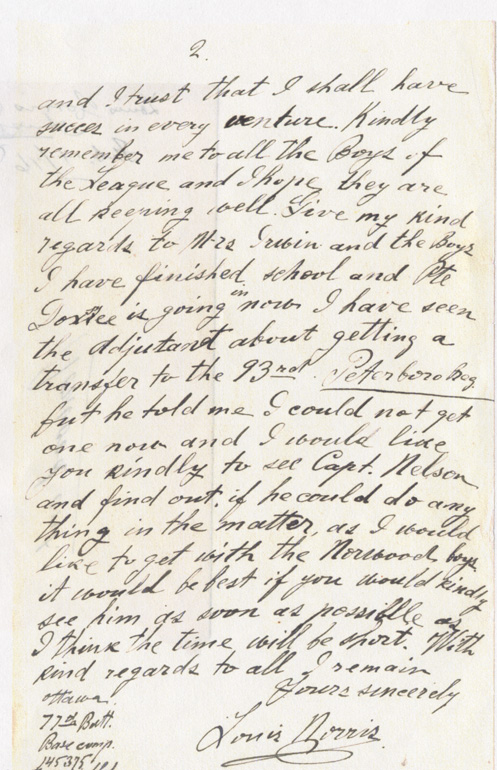 2.
and I trust that I shall have
succes in every venture. Kindly
remember me to all the Boys of
the League and I hope they are
all keeping well. Give my kind
regards to Mrs Irwin and the Boys
I have finished school and Pte
is going in now I have seen
the Adjutant about getting a
transfer to the 93rd. Peterboro Reg.
but he told me I could not get
one now and I would like
you kindly to see Capt. Nelson
and find out if he could do any
thing in the matter, as I would
like to get with the Norwood boys
it would be best if you would kindly
see him as soon as possible as
I think the time will be short. With
kind regards to all I remain
Yours sincerely
Louis Norris.
Ottawa.
77th Batt.
Base comp.
145375